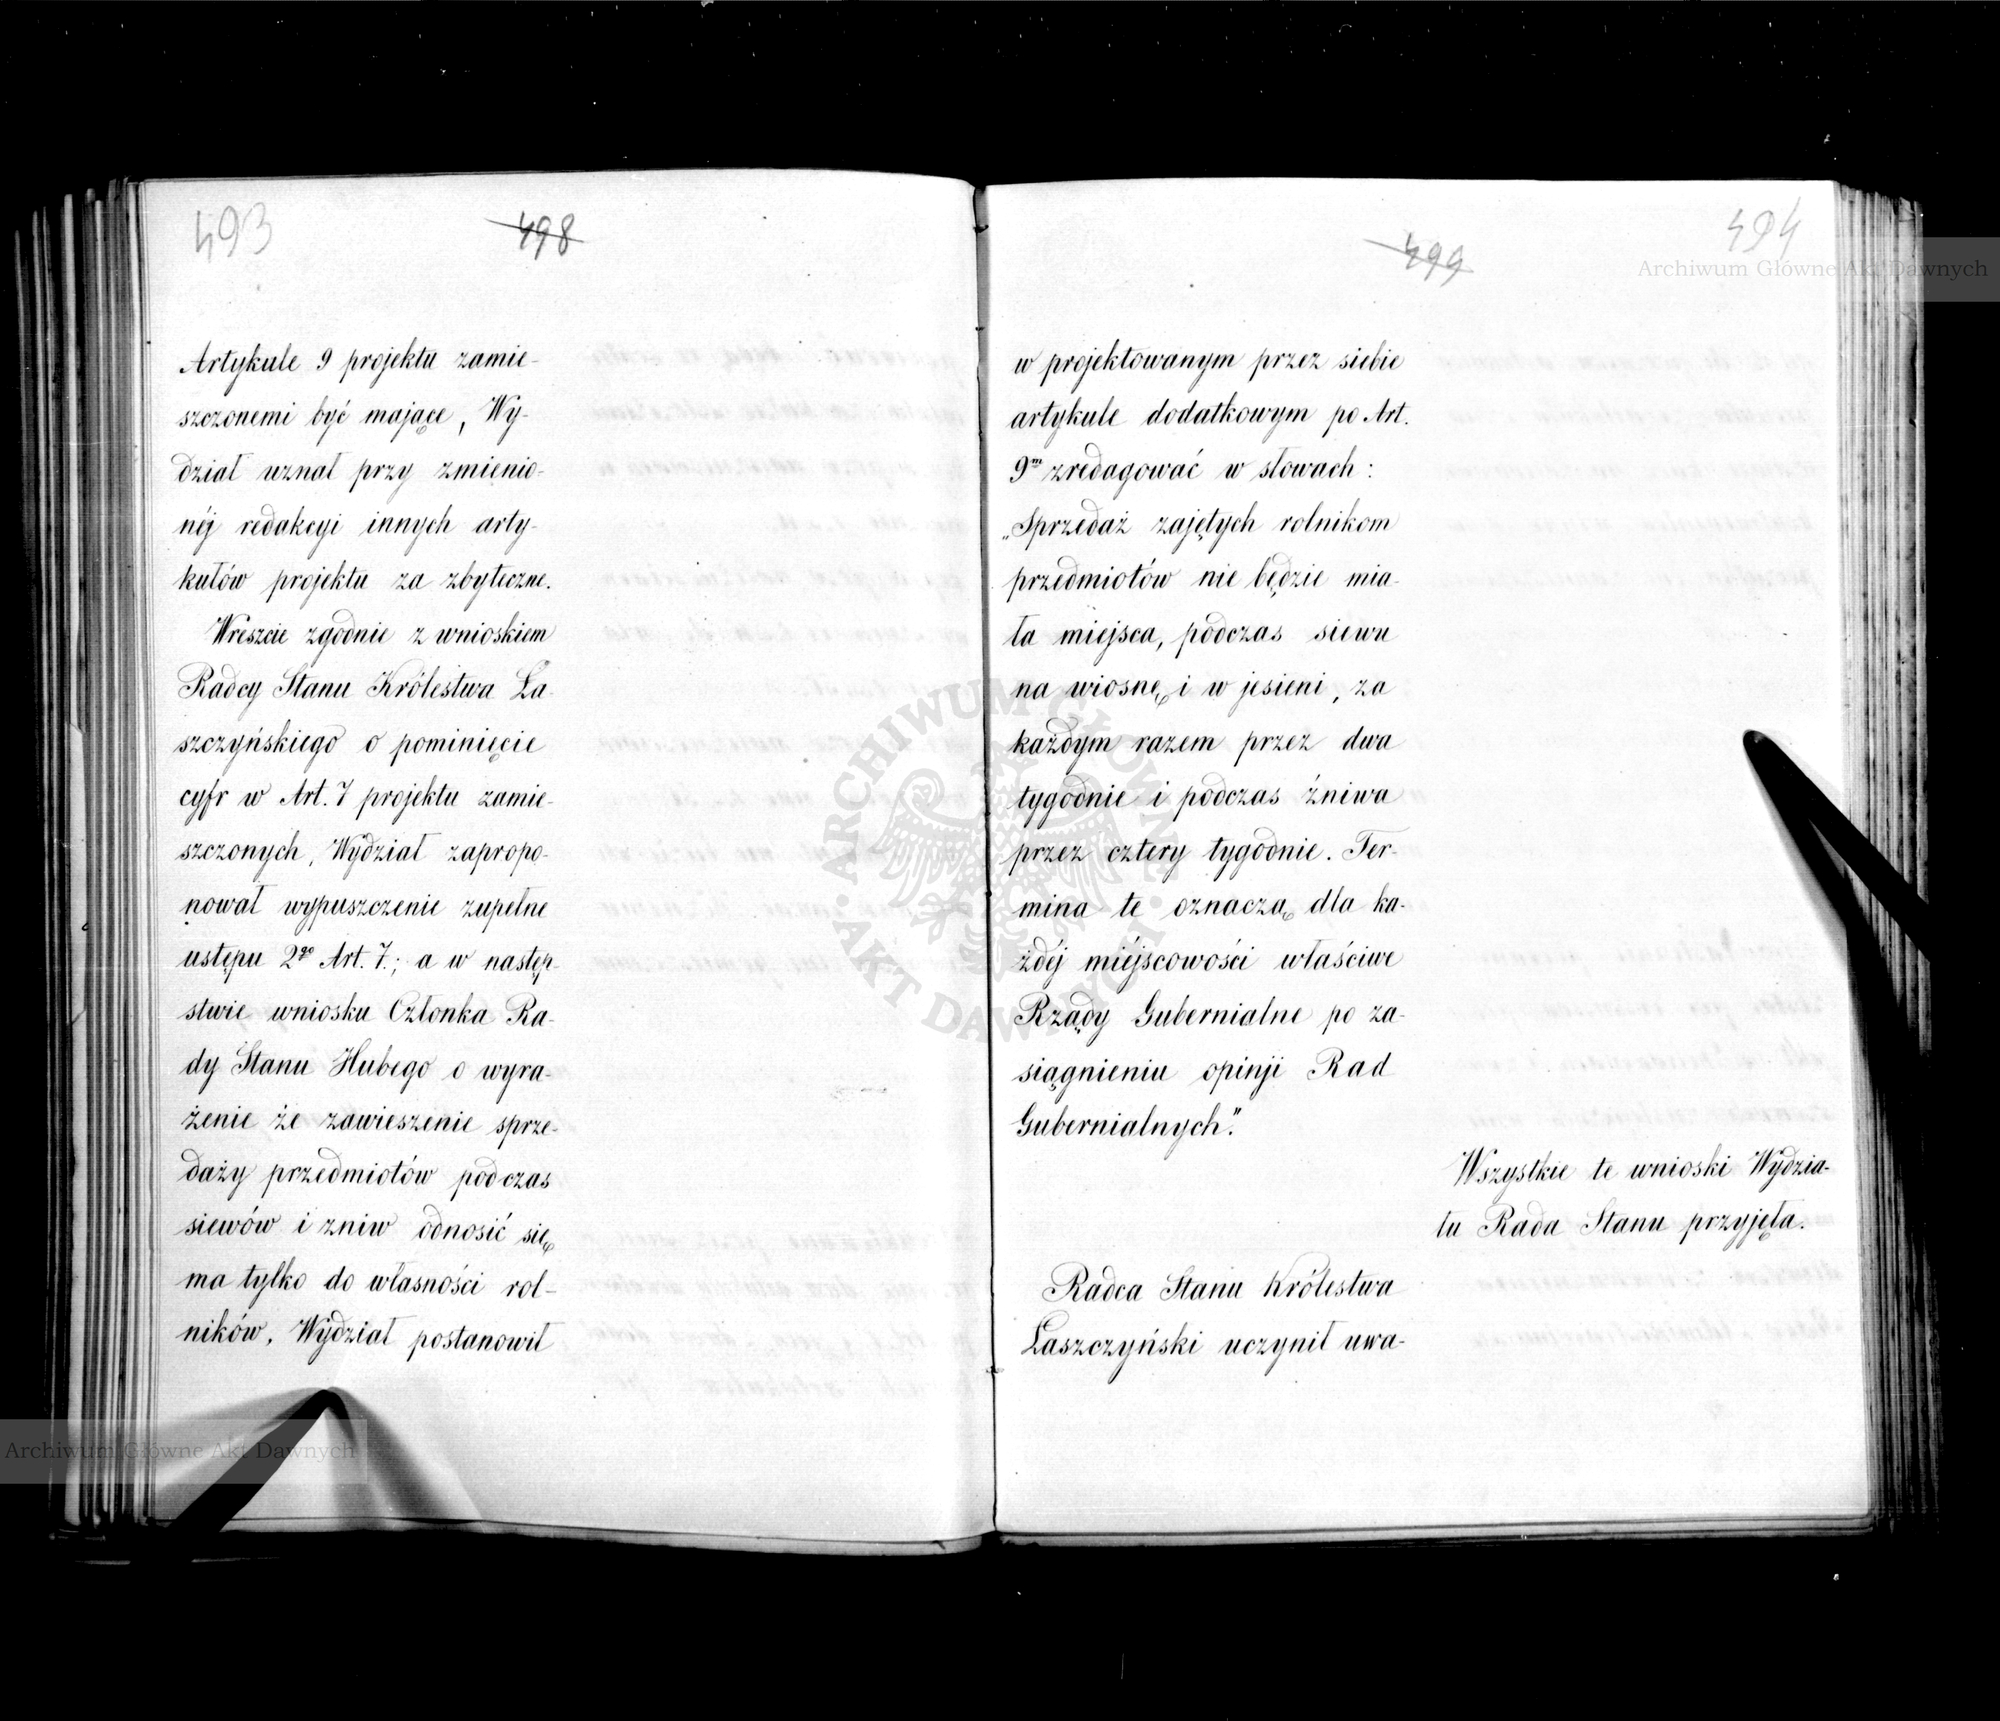 493
498
Artykule 9 projektu zamie-
szczonemi być mające, Wy-
dział uznał przy zmienio-
néj redakcyi innych arty-
kułów projektu za zbyteczne.
Wreszcie zgodnie z wnioskiem
Radcy Stanu Królestwa La-
szczyńskiego o pominięcie
cyfr w Art. 7 projektu zamie-
szczonych, Wydział zapropo-
nował wypuszczenie zupełne
ustępu 2go Art. 7.; a w następ-
stwie wniosku Członka Ra-
dy Stanu Hubego o wyra-
żenie że zawieszenie sprze-
daży przedmiotów podczas
siewów i zniw odnosić się
ma tylko do własności rol-
ników, Wydział postanowił
494
499
w projektowanym przez siebie
artykule dodatkowym po Art.
9m zredagować w słowach:
„Sprzedaż zajętych rolnikom
przedmiotów nie będzie mia-
ła miejsca, podczas siewu
na wiosnę i w jesieni, za
każdym razem przez dwa
tygodnie i podczas żniwa
przez cztery tygodnie. Ter-
mina te oznaczą dla ka-
żdéj miéjscowości właściwe
Rządy Gubernialne po za-
siągnieniu opinji Rad
Gubernialnych."
Wszystkie te wnioski Wydzia-
łu Rada Stanu przyjęła.
Radca Stanu Królestwa
Laszczyński uczynił uwa-
Archiwum Główne Akt Dawnych
ARCHIWUM GŁÓWNE AKT DAWNYCH
Archiwum Główne Akt Dawnych